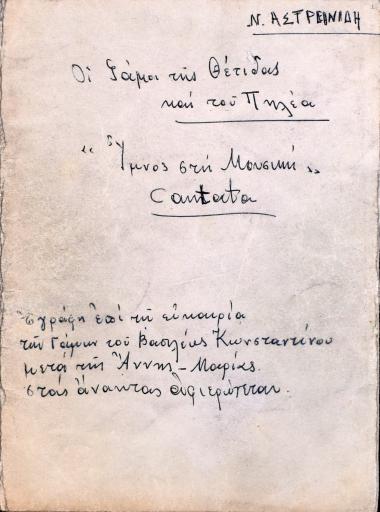 Ν. ΑΣΤΡΕΙΝΙΔΗ
Οἱ Γάμοι τῆς Θέτιδας
καί τοῦ Πηλέα
"Ὕμνος στή Μουσική"
Cantata
Ἐγράφη ἐπί τῇ εὐκαιρία
τῶν Γάμων τοῦ Βασιλέως Κωνσταντίνου
μετά τῆς Ἄννης - Μαρίας.
στούς ἄνακτας ἀφιερώνεται.